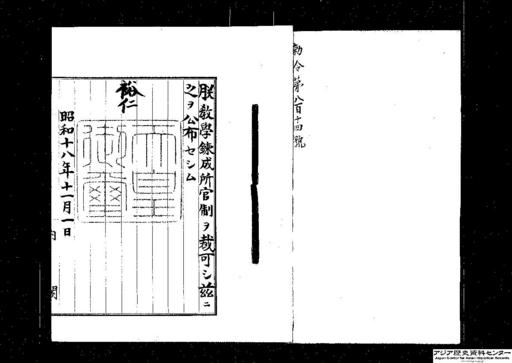 勅令第八百十四號
朕敎學錬成所官制ヲ裁可シ茲ニ
之ヲ公布セシム
裕仁
天皇御璽
昭和十八年十一月一日
内閣
アジア歴史資料センター
Japan Center for Asian Historical Records